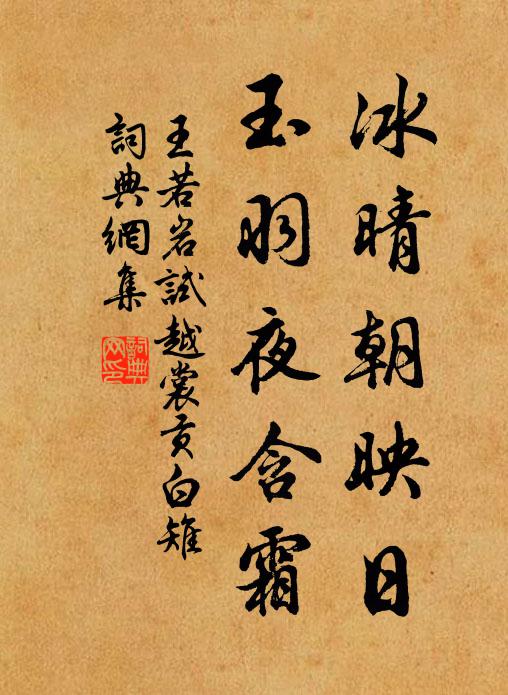 冰晴朝映日
玉羽夜含霜
王若岩試越裳貢白雉
詞典網集
詞典网印